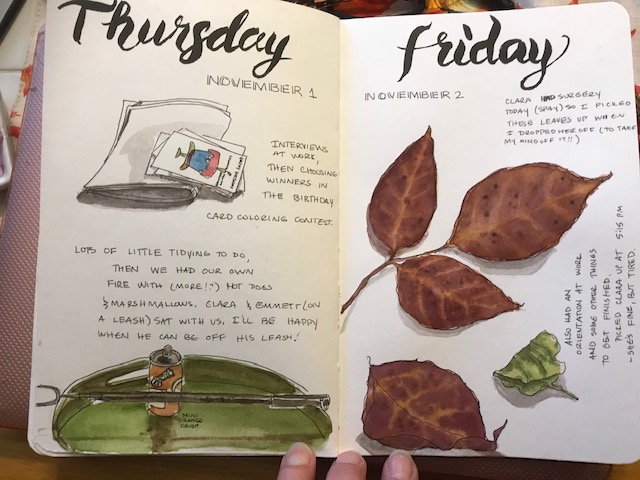 Thursday
NOVEMBER 1
INTERVIEWS
AT WORK,
THEN CHOOSING
WINNERS IN
THE BIRTHDAY
CARD COLORING CONTEST.
LOTS OF LITTLE TIDYING TO DO,
THEN WE HAD OUR OWN
FIRE WITH (MORE!?) HOT DOGS
& MARSHMALLOWS. CLARA & EMMETT (ON
A LEASH) SAT WITH US. I'LL BE HAPPY
WHEN HE CAN BE OFF HIS LEASH!
MINI
ORANGE
CRUSH
friday
NOVEMBER 2
CLARA HAD SURGERY
TODAY (SPAY) SO I PICKED
THESE LEAVES UP WHEN
I DROPPED HER OFF (TO TAKE
MY MIND OFF IT!!)
ALSO HAD AN
ORIENTATION AT WORK
AND SOME OTHER THINGS
TO GET FINISHED.
PICKED CLARA UP AT 5:15 PM
~ SHE'S FINE, BUT TIRED.